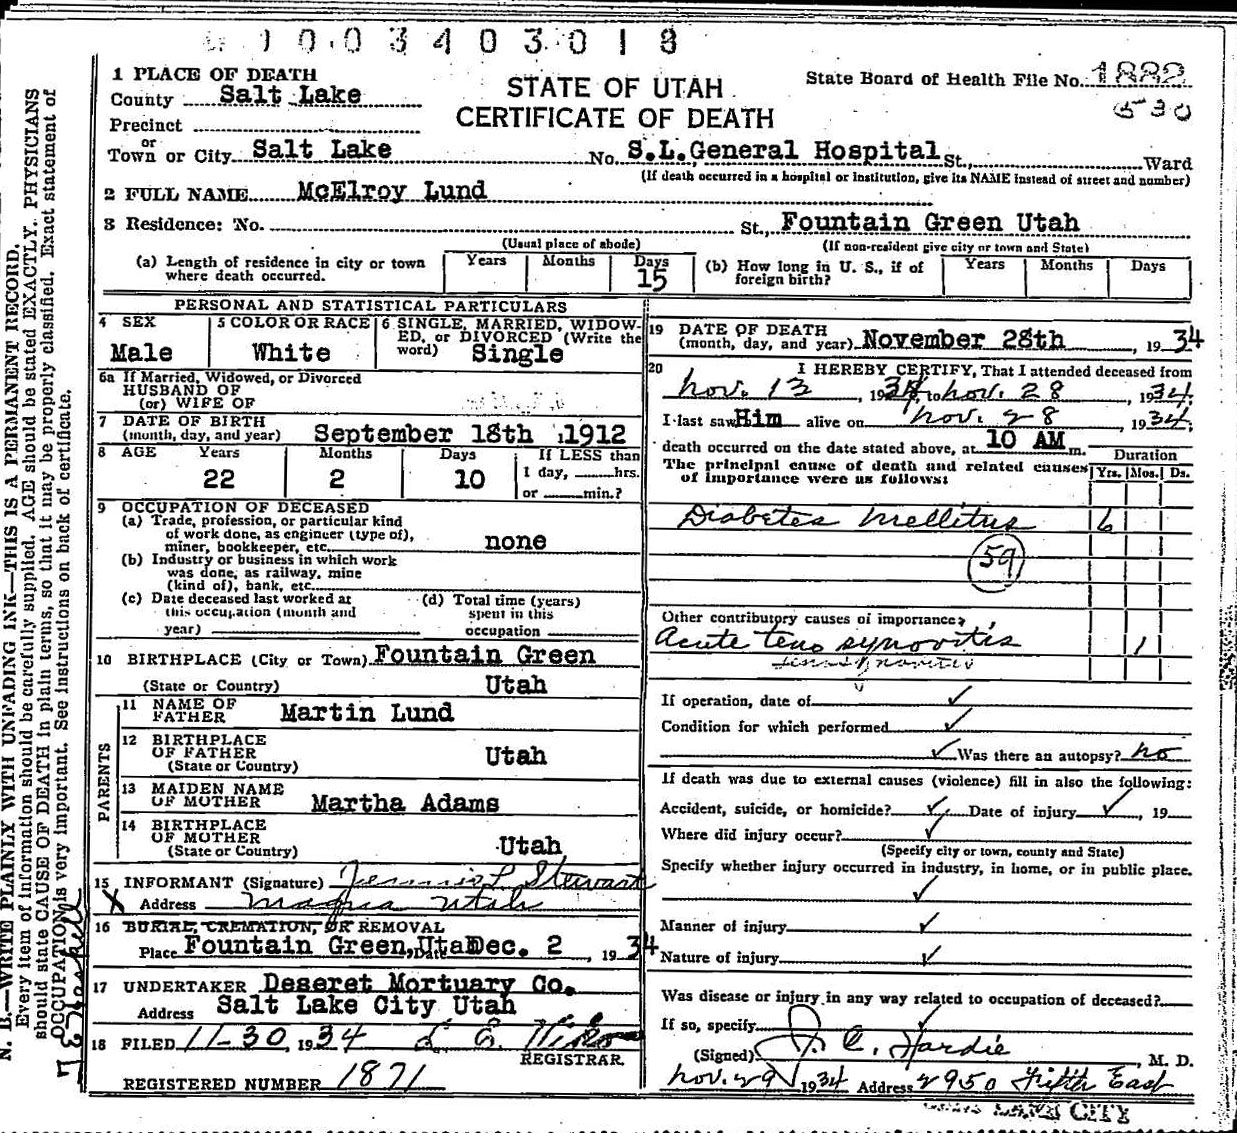 1 0 0 3 4 0 3 0 1 8
1 PLACE OF DEATH
County Salt Lake
Precinct
or
Town or City Salt Lake
STATE OF UTAH
CERTIFICATE OF DEATH
State Board of Health File No. 1882
530
No. S.L.General Hospital St., Ward
(If death occurred in a hospital or institution, give its NAME instead of street and number)
2 FULL NAME McElroy Lund
3 Residence: No. St., Fountain Green Utah
(Usual place of abode) (If non-resident give city or town and State)
(a) Length of residence in city or town where death occurred. Years Months Days 15
(b) How long in U. S., if of foreign birth? Years Months Days
PERSONAL AND STATISTICAL PARTICULARS
4 SEX Male
5 COLOR OR RACE White
6 SINGLE, MARRIED, WIDOW-
ED, or DIVORCED (Write the
word) Single
6a If Married, Widowed, or Divorced
HUSBAND OF
(or) WIFE OF
7 DATE OF BIRTH
(month, day, and year) September 18th 1912
8 AGE Years Months Days If LESS than
22 2 10 1 day, hrs.
or min.?
9 OCCUPATION OF DECEASED
(a) Trade, profession, or particular kind
of work done, as engineer (type of),
miner, bookkeeper, etc. none
(b) Industry or business in which work
was done, as railway, mine
(kind of), bank, etc.
(c) Date deceased last worked at
this occupation (month and
year)
(d) Total time (years)
spent in this
occupation
10 BIRTHPLACE (City or Town) Fountain Green
(State or Country) Utah
PARENTS
11 NAME OF
FATHER Martin Lund
12 BIRTHPLACE
OF FATHER Utah
(State or Country)
13 MAIDEN NAME
OF MOTHER Martha Adams
14 BIRTHPLACE
OF MOTHER
(State or Country) Utah
15 INFORMANT (Signature) Jennie L Stewart
X Address Magna Utah
16 BURIAL, CREMATION, OR REMOVAL
Place Fountain Green,Utah Date Dec. 2, 1934
17 UNDERTAKER Deseret Mortuary Co.
Address Salt Lake City Utah
18 FILED 11-30, 1934
REGISTRAR.
REGISTERED NUMBER 1871
19 DATE OF DEATH
(month, day, and year) November 28th, 1934
20 I HEREBY CERTIFY, That I attended deceased from
Nov. 13, 1934, to Nov. 28, 1934.
I last saw Him alive on Nov. 28, 1934;
death occurred on the date stated above, at 10 AM m.
The principal cause of death and related causes
of importance were as follows:
Duration
Yrs. Mos. Ds.
Diabetes Mellitus 6
59
Other contributory causes of importance:
Acute teno synovitis 1
tenosynovitis
If operation, date of ✓
Condition for which performed ✓
✓ Was there an autopsy? no
If death was due to external causes (violence) fill in also the following:
Accident, suicide, or homicide? ✓ Date of injury ✓, 19
Where did injury occur? ✓
(Specify city or town, county and State)
Specify whether injury occurred in industry, in home, or in public place.
✓
Manner of injury ✓
Nature of injury ✓
Was disease or injury in any way related to occupation of deceased?
If so, specify ✓
(Signed) J. C. Hardie, M. D.
Nov. 29 1934 Address 2950 Fifth East
LAKE CITY
N. B.—WRITE PLAINLY WITH UNFADING INK—THIS IS A PERMANENT RECORD.
Every item of information should be carefully supplied. AGE should be stated EXACTLY. PHYSICIANS
should state CAUSE OF DEATH in plain terms, so that it may be properly classified. Exact statement of
OCCUPATION is very important. See instructions on back of certificate.